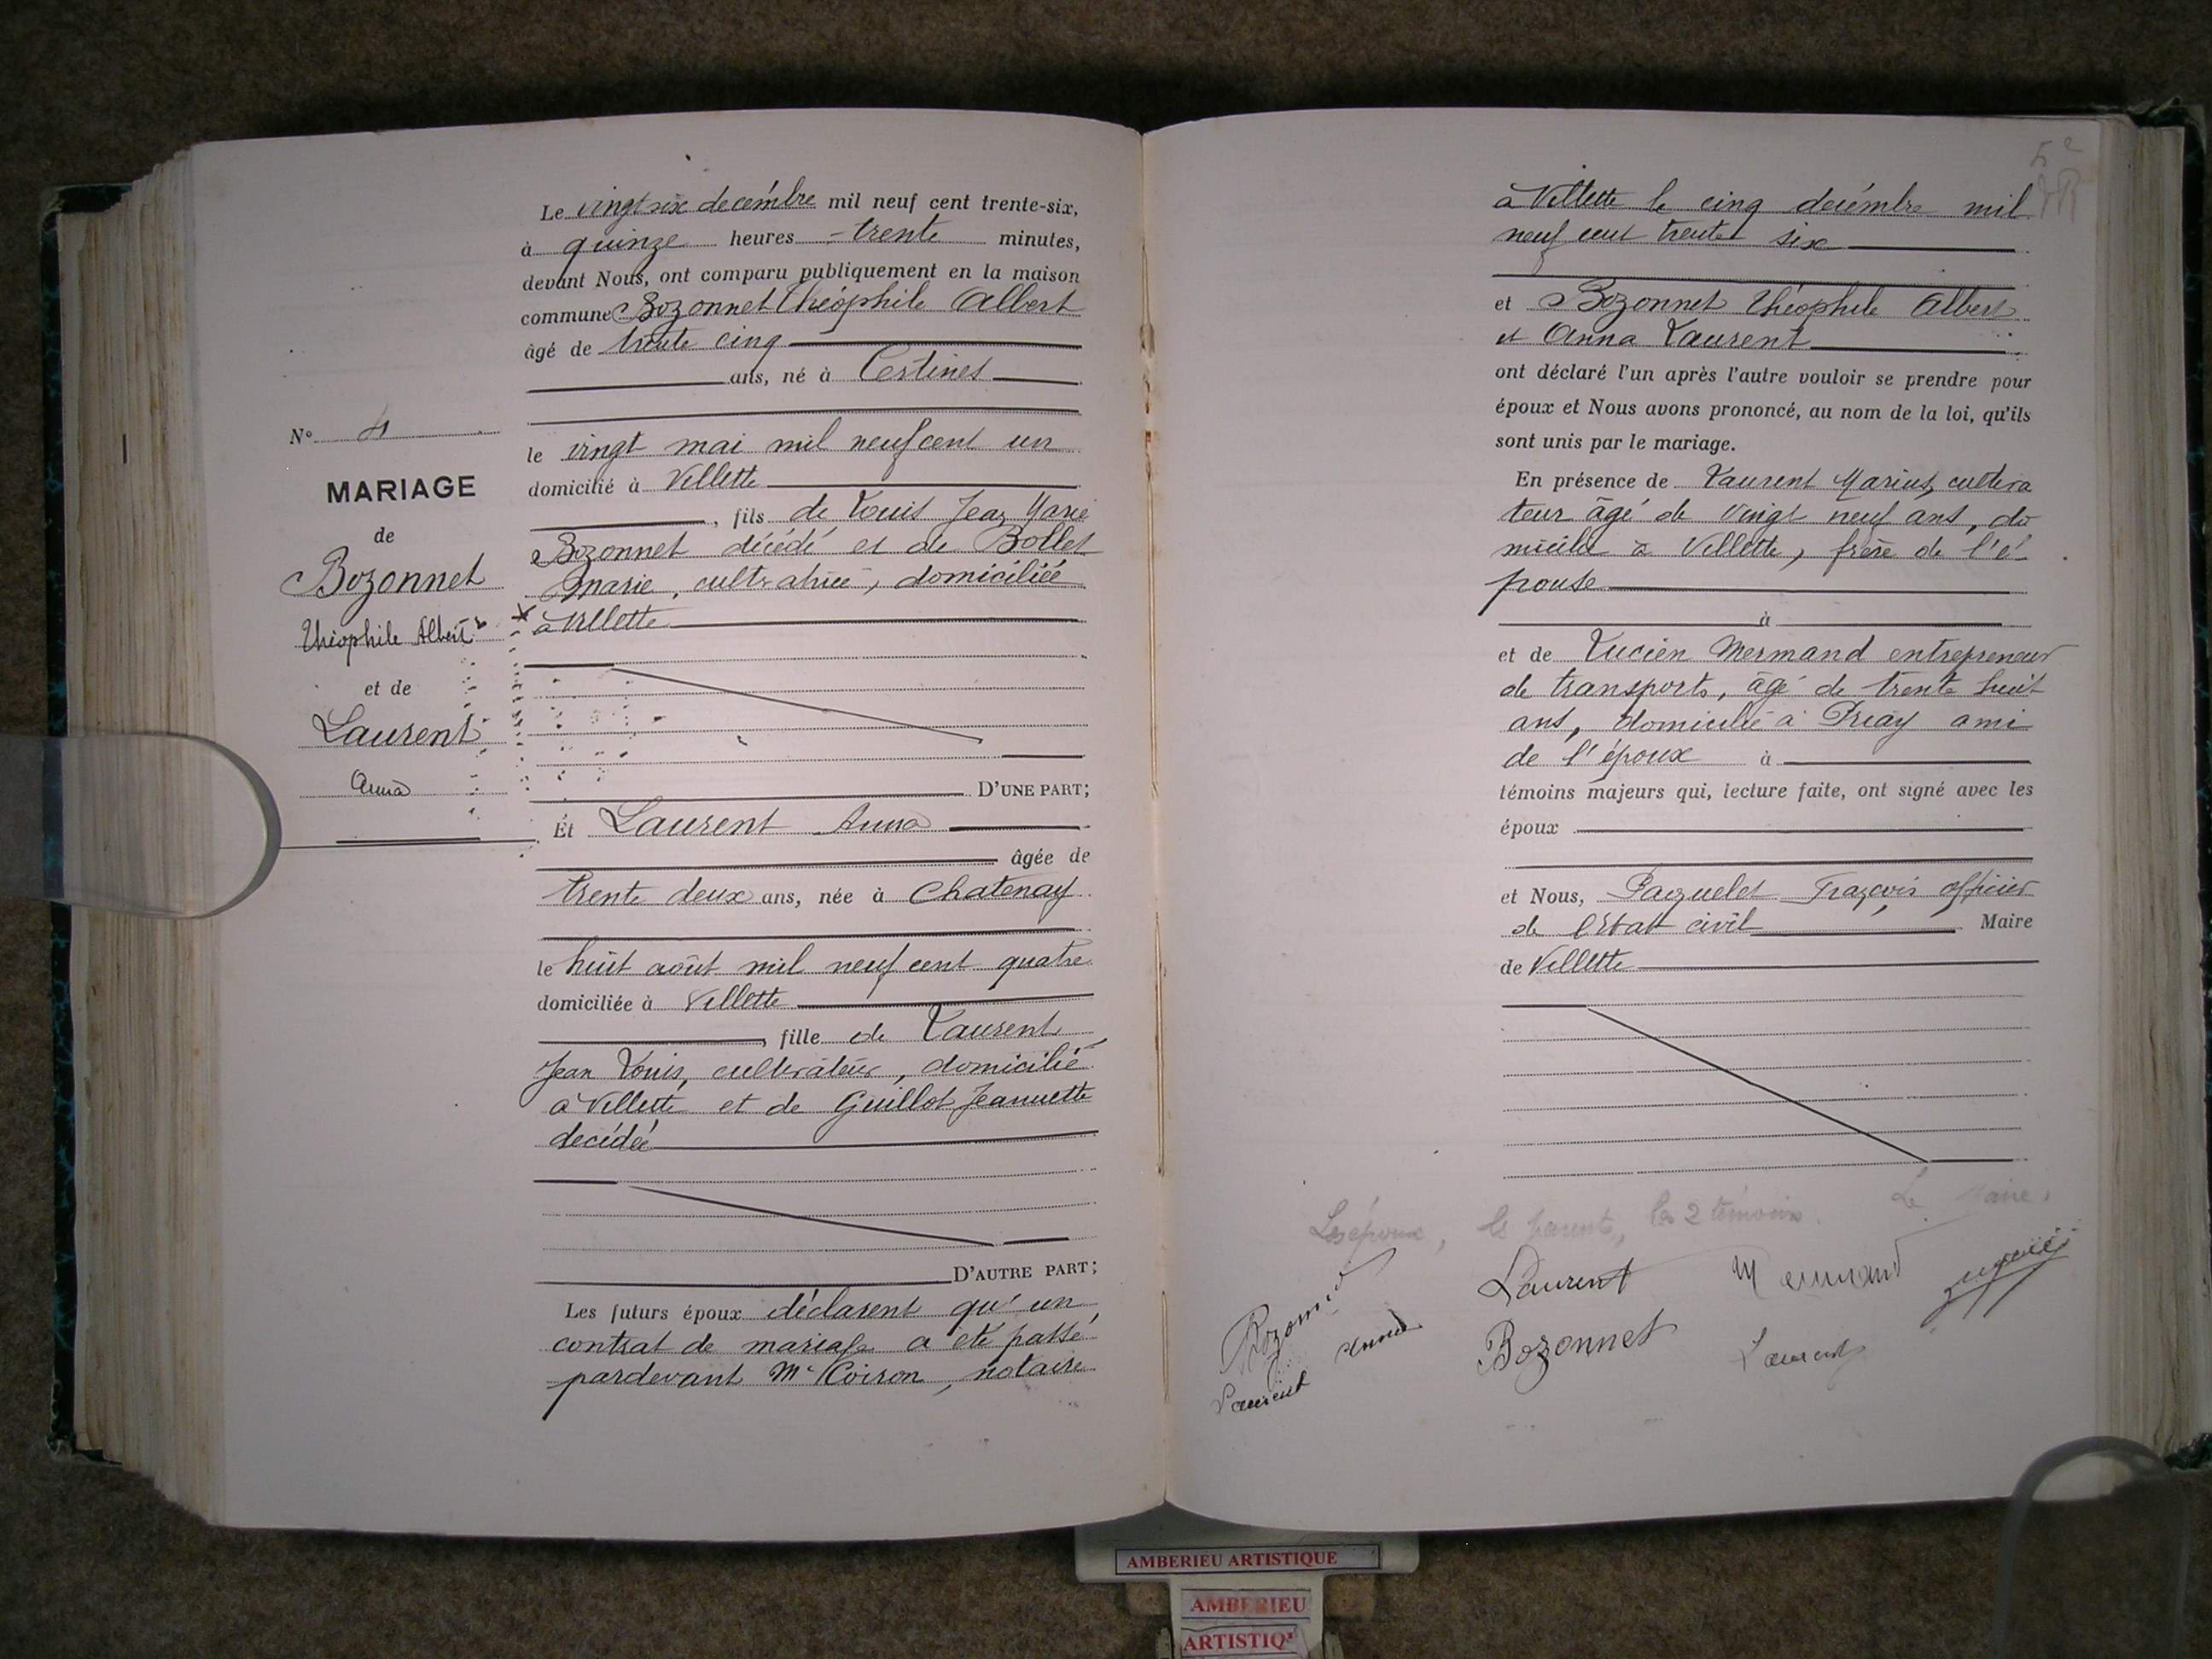 Le vingt six decémbre mil neuf cent trente-six,
à quinze heures trente minutes,
devant Nous, ont comparu publiquement en la maison
commune Bozonnet Théophile Albert
âgé de trente cinq
ans, né à Certines
le vingt mai mil neuf cent un
domicilié à Villette
, fils de Louis Jean Marie
Bozonnet décédé et de Bollet
marie, cultivatrice, domiciliée
à Villette
D'UNE PART;
Et Laurent Anna
âgée de
trente deux ans, née à Chatenay
le huit août mil neuf cent quatre
domiciliée à Villette
, fille de Laurent
Jean Louis, cultivateur, domicilié
à Villette et de Guillot Jeannette
decédée
D'AUTRE PART;
Les futurs époux déclarent qu'un
contrat de mariage a été passé
pardevant Me Coiron, notaire
N° 4
MARIAGE
de
Bozonnet
Théophile Albert
et de
Laurent
Anna
à Villette le cinq decémbre mil
neuf cent trente six
et Bozonnet Théophile Albert
et Anna Laurent
ont déclaré l'un après l'autre vouloir se prendre pour
époux et Nous avons prononcé, au nom de la loi, qu'ils
sont unis par le mariage.
En présence de Laurent Marius, cultiva
teur âgé de vingt neuf ans, do
micilié à Villette, frère de l'é
pouse
à
et de Lucien Mermand entrepreneur
de transports, âgé de trente huit
ans, domicilié à Priay ami
de l'époux à
témoins majeurs qui, lecture faite, ont signé avec les
époux
et Nous, Paquelet François officier
de l'Etat civil Maire
de Villette
Les époux, les parents, les 2 témoins. Le Maire,
Bozonnet
Laurent Anna
Laurent
Mermand
Bozonnet
Laurent
AMBERIEU ARTISTIQUE
AMBERIEU
ARTISTIQ